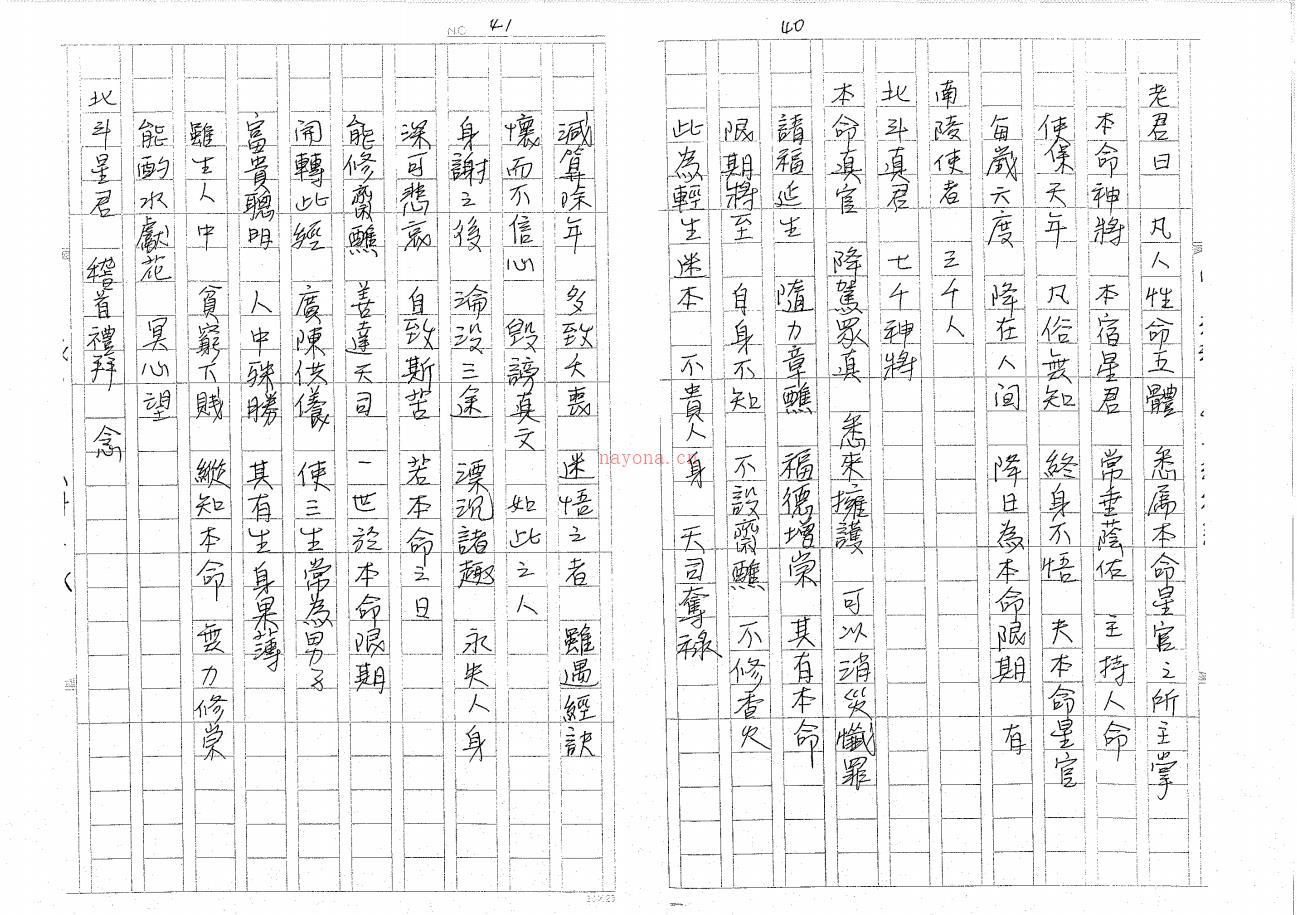 40
老君曰 凡人性命五體 悉屬本命星官之所主掌
本命神將 本宿星君 常垂蔭佑 主持人命
使保天年 凡俗無知 終身不悟 夫本命星官
每歲六度 降在人间 降日為本命限期 有
南陵使者 三千人
北斗真君 七千神將
本命真官 降駕眾真 悉來擁護 可以消災懺罪
請福延生 隨力章醮 福德增崇 其有本命
限期將至 自身不知 不設齋醮 不修香火
此為輕生迷本 不貴人身 天司奪祿
NO. 41
減算除年 多致夭喪 迷悟之者 雖遇經訣
懷而不信心 毀謗真文 如此之人
身謝之後 淪沒三途 漂沉諸趣 永失人身
深可悲哀 自致斯苦 若本命之日
能修齋醮 善達天司 一世於本命限期
開轉此經 廣陳供儀 使三生常為男子
富貴聰明 人中殊勝 其有生身果薄
雖生人中 貧窮下賎 縱知本命 無力修崇
能酌水獻花 冥心望
北斗星君 稽首禮拜 念
nayona.cn